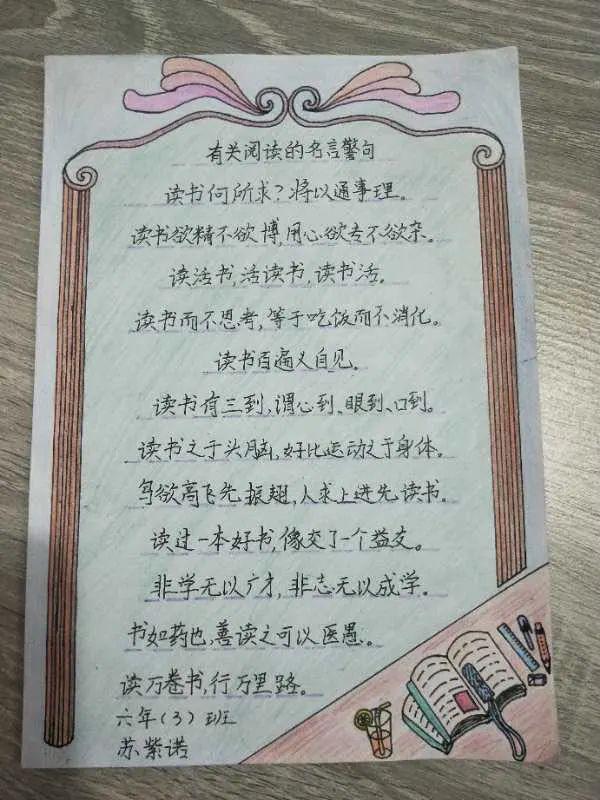 有关阅读的名言警句
读书何所求？将以通事理。
读书欲精不欲博，用心欲专不欲杂。
读活书，活读书，读书活。
读书而不思考，等于吃饭而不消化。
读书百遍义自见。
读书有三到，谓心到、眼到、口到。
读书之于头脑，好比运动之于身体。
鸟欲高飞先振翅，人求上进先读书。
读过一本好书，像交了一个益友。
非学无以广才，非志无以成学。
书如药也，善读之可以医愚。
读万卷书，行万里路。
六年（3）班
苏紫诺